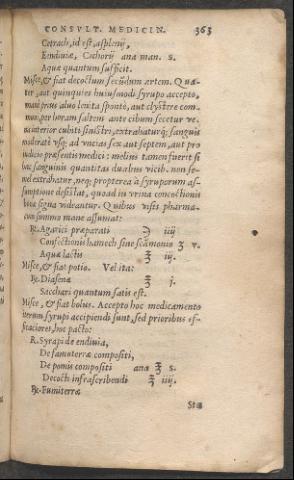 CONSVLT. MEDICIN. 363
Cetrach, id est, asplenij,
Endiuiæ, Cichorij ana man. s.
Aquæ quantum sufficit.
Misce, & fiat decoctum secũdum artem. Qua-
ter, aut quinquies huiusmodi syrupo accepto,
mani prius aluo lenita spontè, aut clystere com-
moto, per horam saltem ante cibum secetur ve-
na interior cubiti sinistri, extrahaturq; sanguis
moderatè vsq; ad vncias sex aut septem, aut pro
iudicio præsentis medici: melius tamen fuerit si
hæc sanguinis quantitas duabus vicib. non se-
mel extrahatur, neq; propterea à syruporum as-
sumptione desistat, quoad in vrina concoctionis
bona signa videantur. Quibus visis pharma-
cum summo mane assumat:
℞. Agarici præparati ℈ iiij
Confectionis hamech sine scãmonio ʒ v.
Aquæ lactis ℥ iij.
Misce, & fiat potio. Vel ita:
℞. Diasenæ ℥ j.
Sacchari quantum satis est.
Misce, & fiat bolus. Accepto hoc medicamento
iterum syrupi accipiendi sunt, sed prioribus ef-
ficaciores, hoc pacto:
R. Syrupi de endiuia,
De fumoterræ compositi,
De pomis compositi ana ℥ s.
Decocti infrascribendi ℥ iiij.
℞. Fumiterræ
Stœ